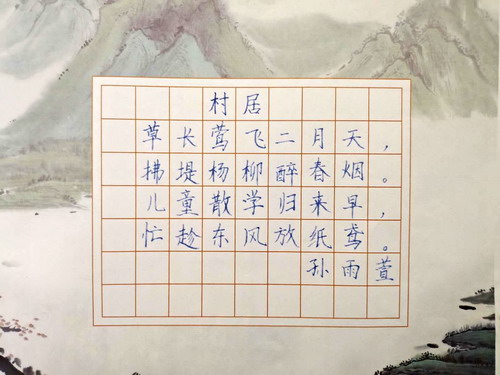 村居
草长莺飞二月天，
拂堤杨柳醉春烟。
儿童散学归来早，
忙趁东风放纸鸢。
孙雨萱